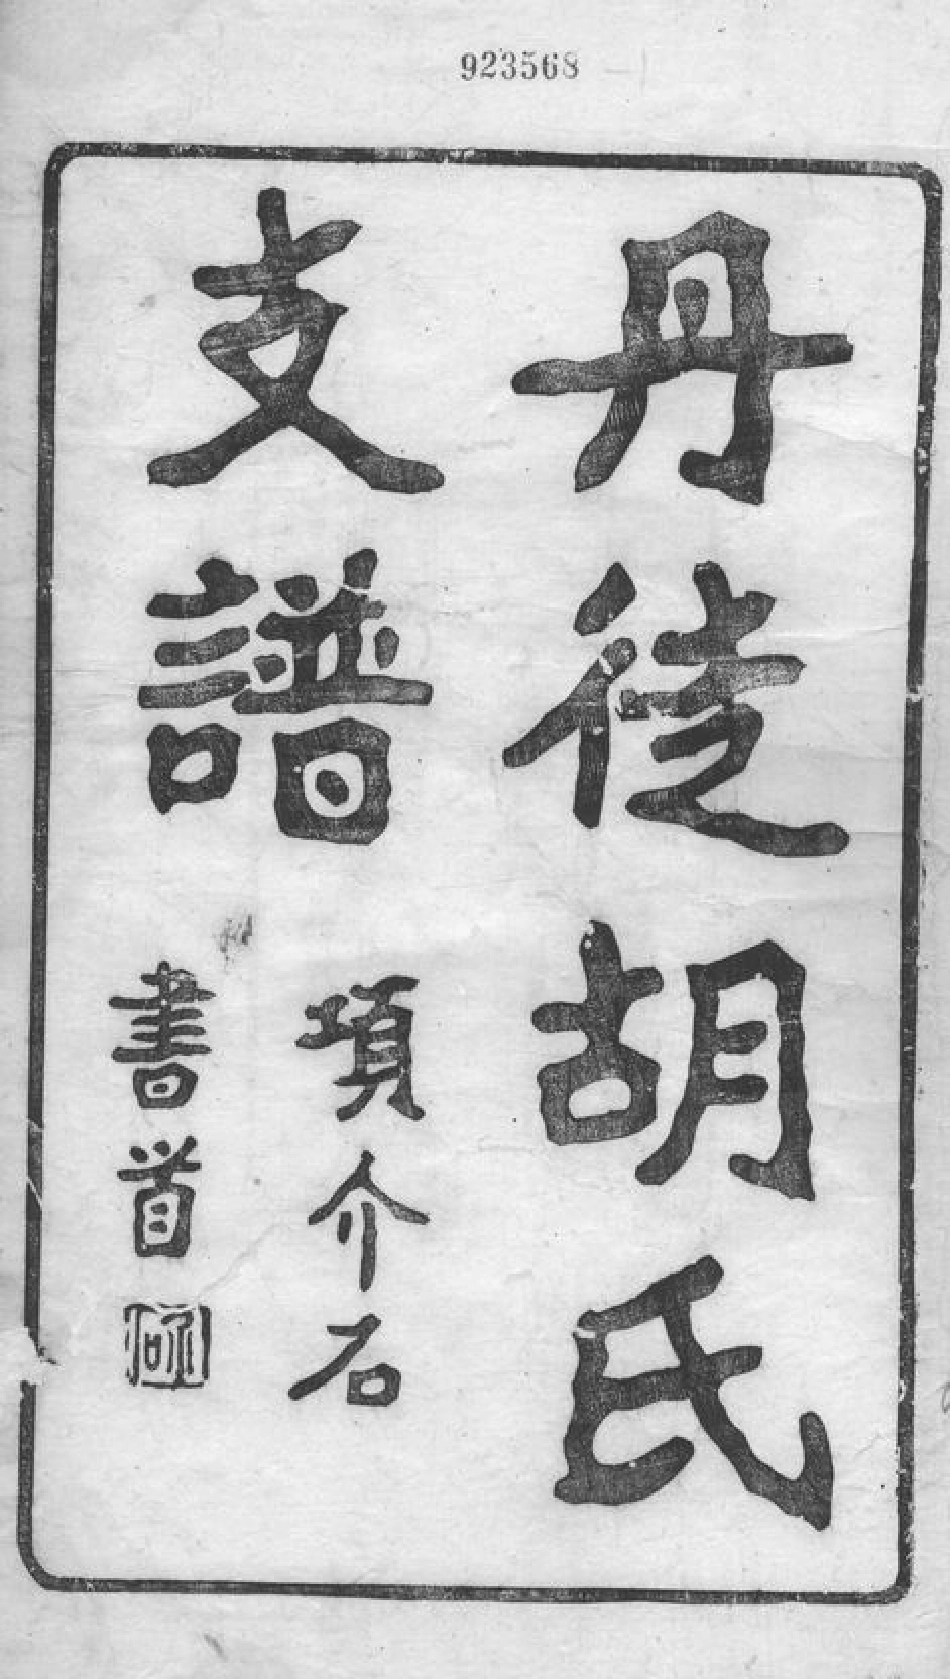 923568
丹徒胡氏
支譜
項介石
書首